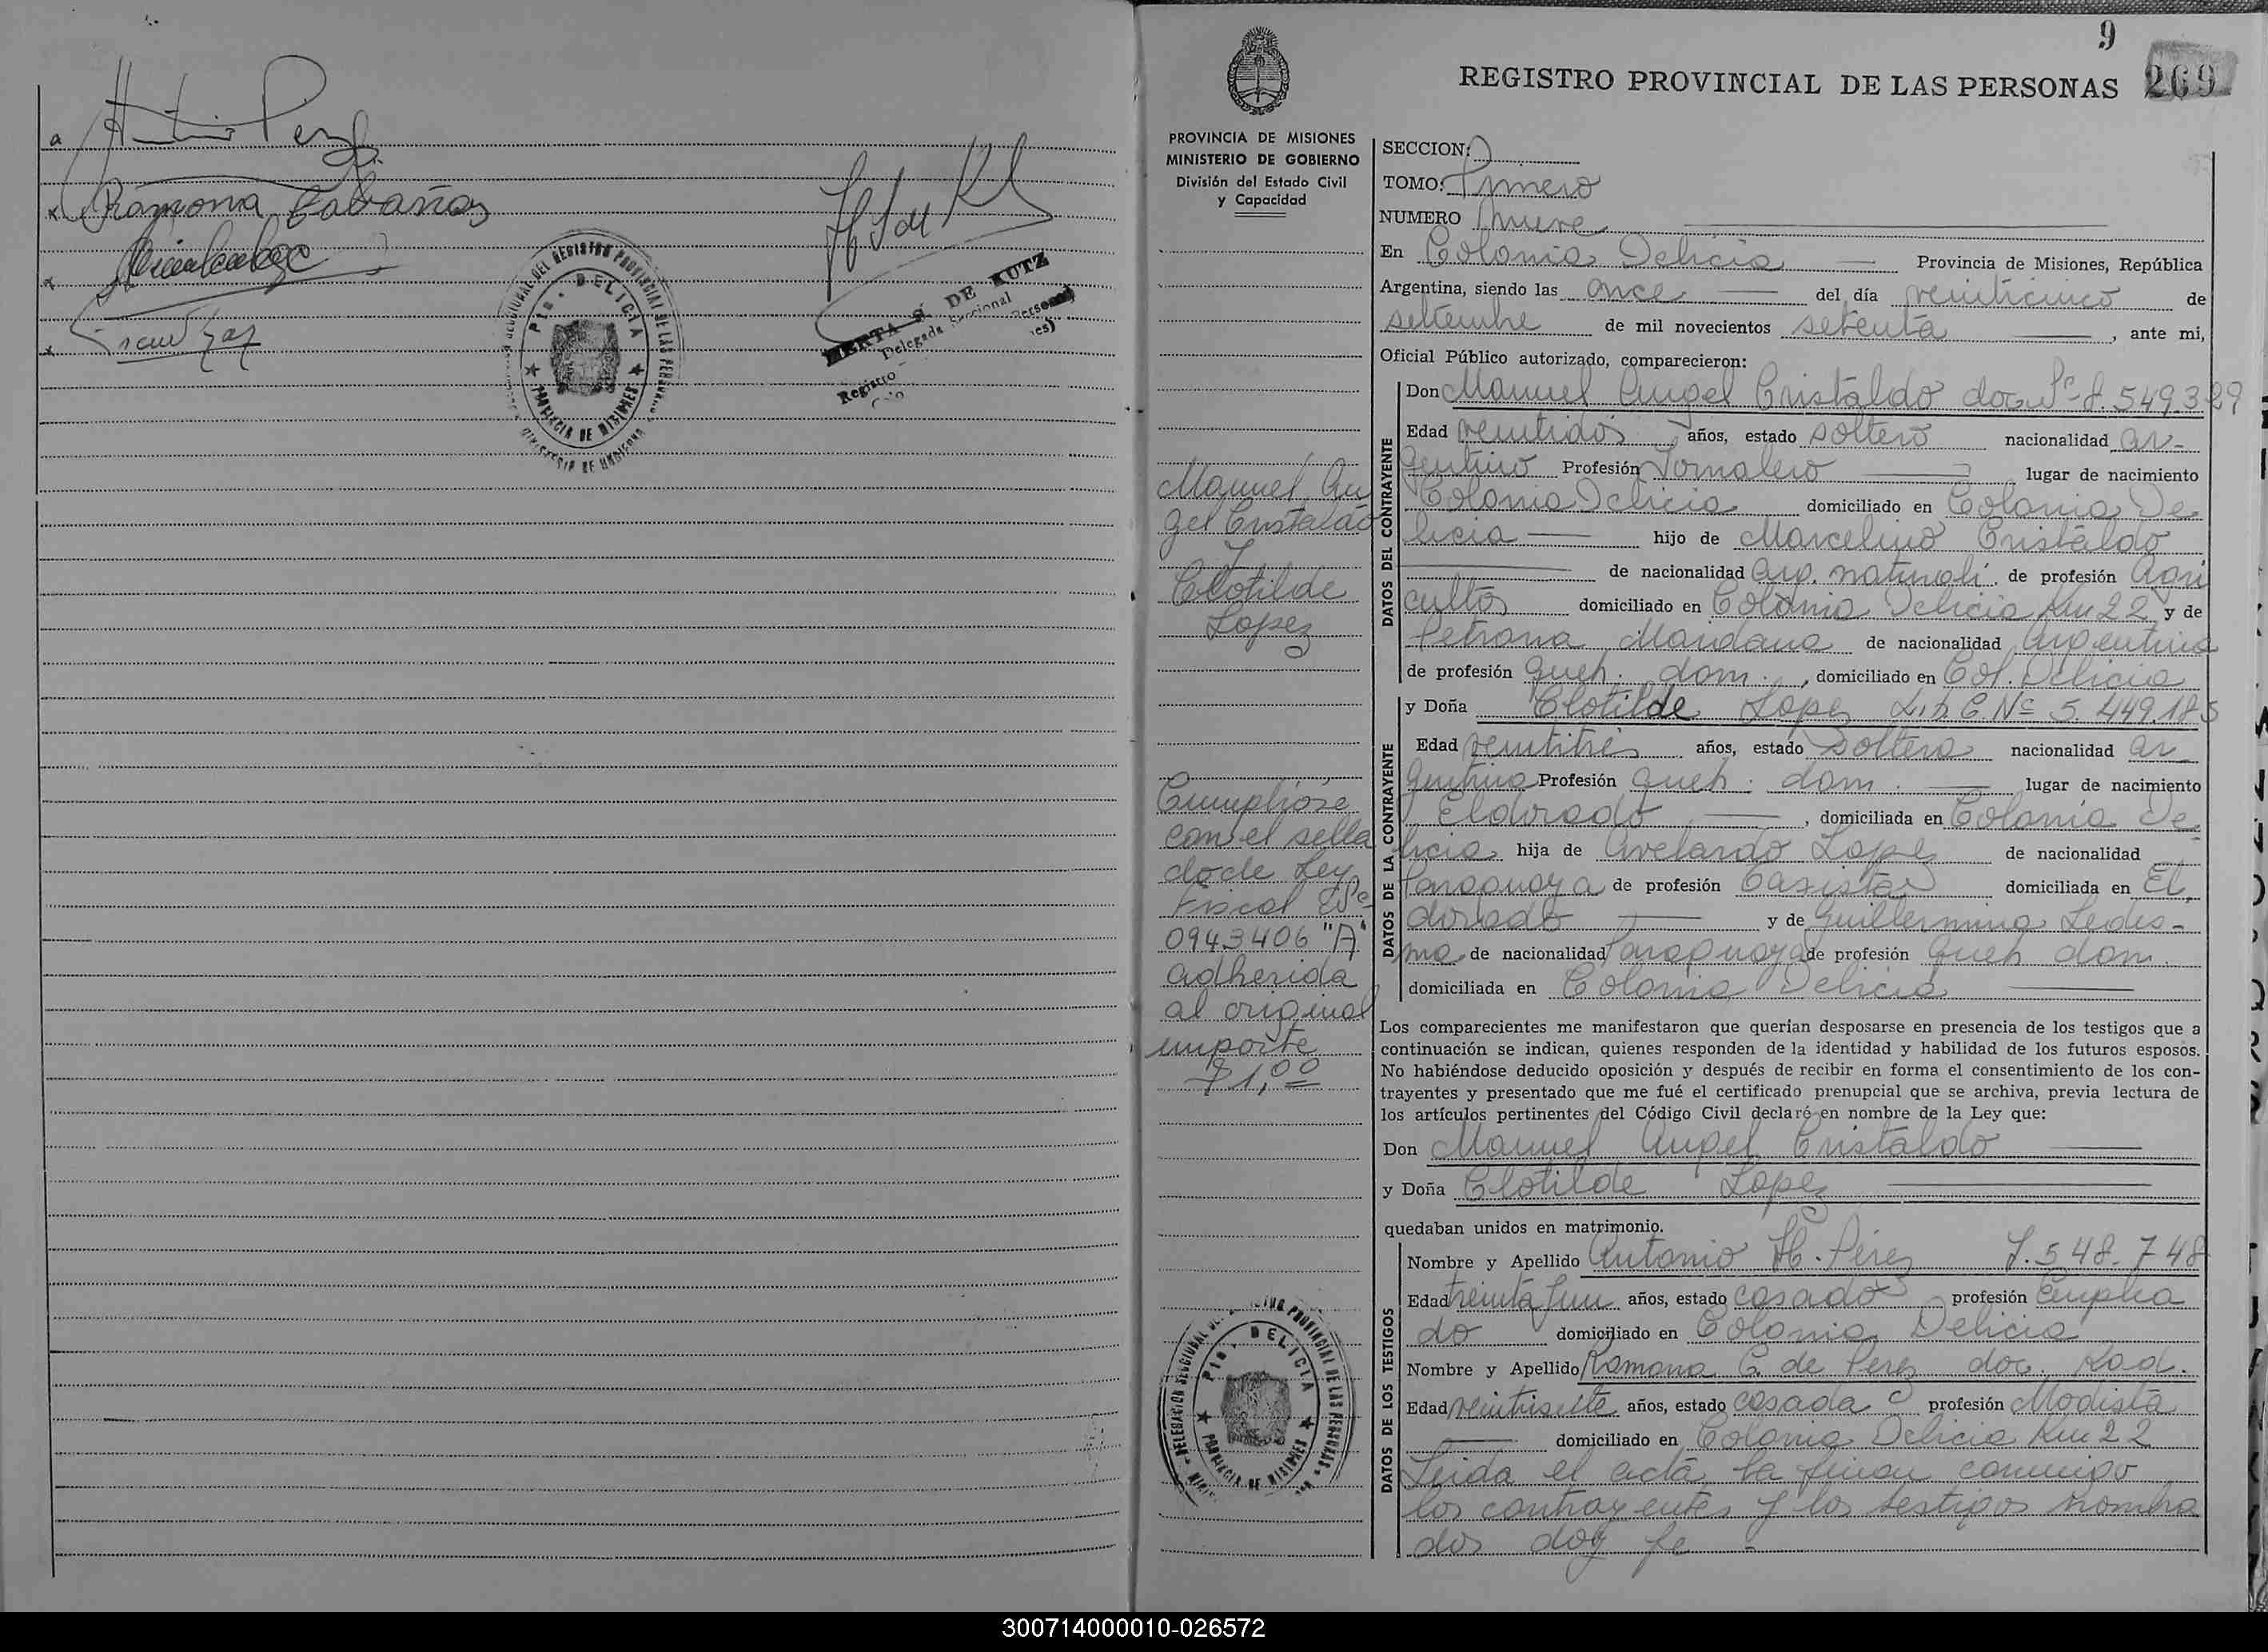 Antonio Perez
Ramona Cabañas
HERTA S. DE KUTZ
Delegada Seccional
Registro Personas
DELEGACION SECCIONAL DEL REGISTRO PROVINCIAL DE LAS PERSONAS
Pto. DELICIA
PROVINCIA DE MISIONES
9
REGISTRO PROVINCIAL DE LAS PERSONAS 269
PROVINCIA DE MISIONES
MINISTERIO DE GOBIERNO
División del Estado Civil
y Capacidad
Manuel An
gel Cristaldo
y
Clotilde
Lopez
Cumplióse
con el sella
do de Ley
Fiscal Nº
0943406 "A"
adherida
al original
importe
$1,00
DELEGACION SECCIONAL DEL REGISTRO PROVINCIAL DE LAS PERSONAS
Pto. DELICIA
PROVINCIA DE MISIONES
SECCION:
TOMO: Primero
NUMERO nueve
En Colonia Delicia Provincia de Misiones, República
Argentina, siendo las once del día veinticinco de
setiembre de mil novecientos setenta, ante mi,
Oficial Público autorizado, comparecieron:
DATOS DEL CONTRAYENTE
Don Manuel Angel Cristaldo doc. Nº 8.549.329
Edad veintidos años, estado soltero nacionalidad ar-
gentino Profesión Jornalero lugar de nacimiento
Colonia Delicia domiciliado en Colonia De
licia hijo de Marcelino Cristaldo
de nacionalidad arg. naturali. de profesión Agri
cultor domiciliado en Colonia Delicia Km 22 y de
Petrona Maidana de nacionalidad Argentina
de profesión queh. dom., domiciliado en Col. Delicia
DATOS DE LA CONTRAYENTE
y Doña Clotilde Lopez L.C. Nº 5.449.185
Edad veintitrés años, estado soltera nacionalidad ar
gentina Profesión queh. dom. lugar de nacimiento
Eldorado, domiciliada en Colonia De
licia hija de Avelardo Lopez de nacionalidad
Paraguaya de profesión domiciliada en El
dorado y de Guillermina Ledes-
ma de nacionalidad Paraguaya de profesión queh dom.
domiciliada en Colonia Delicia
Los comparecientes me manifestaron que querían desposarse en presencia de los testigos que a
continuación se indican, quienes responden de la identidad y habilidad de los futuros esposos.
No habiéndose deducido oposición y después de recibir en forma el consentimiento de los con-
trayentes y presentado que me fué el certificado prenupcial que se archiva, previa lectura de
los artículos pertinentes del Código Civil declaré en nombre de la Ley que:
Don Manuel Angel Cristaldo
y Doña Clotilde Lopez
quedaban unidos en matrimonio.
DATOS DE LOS TESTIGOS
Nombre y Apellido Antonio H. Pérez 7.548.748
Edad treinta y un años, estado casado profesión Emplea
do domiciliado en Colonia Delicia
Nombre y Apellido Ramona C. de Perez doc. Rad.
Edad veintisiete años, estado casada profesión Modista
domiciliado en Colonia Delicia Km 22
Leida el acta la firman conmigo
los contrayentes y los testigos nombra
dos doy fe
300714000010-026572